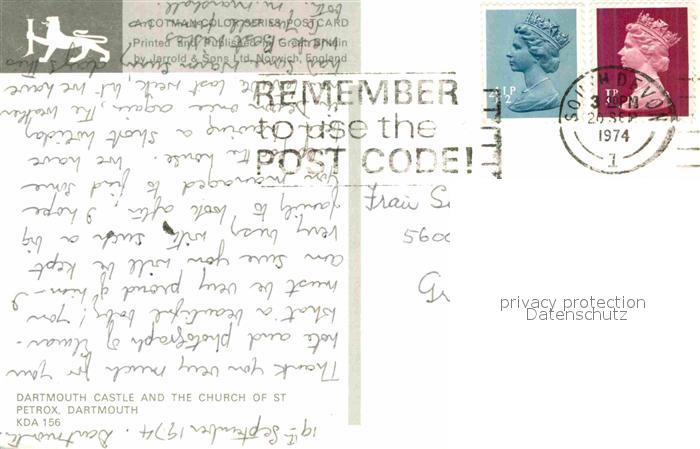 A COTMAN-COLOR SERIES POSTCARD
Printed and Published in Great Britain
by Jarrold & Sons Ltd, Norwich, England
REMEMBER
to use the
POST CODE!
SOUTH DEVON
3 PM
20 SEP
1974
1
2½P
1P
Frau
560
privacy protection
Datenschutz
DARTMOUTH CASTLE AND THE CHURCH OF ST
PETROX, DARTMOUTH
KDA 156
19th September 1974. Dartmouth.
Thank you very much for your
note and photograph of
What a beautiful baby! You
must be very proud of him - I
am sure you will be kept
very busy with such a big
family to look after. I hope
you managed to find some
the house. We have
having a short holiday
once again. The weather
wet last week, but we have
warm days this